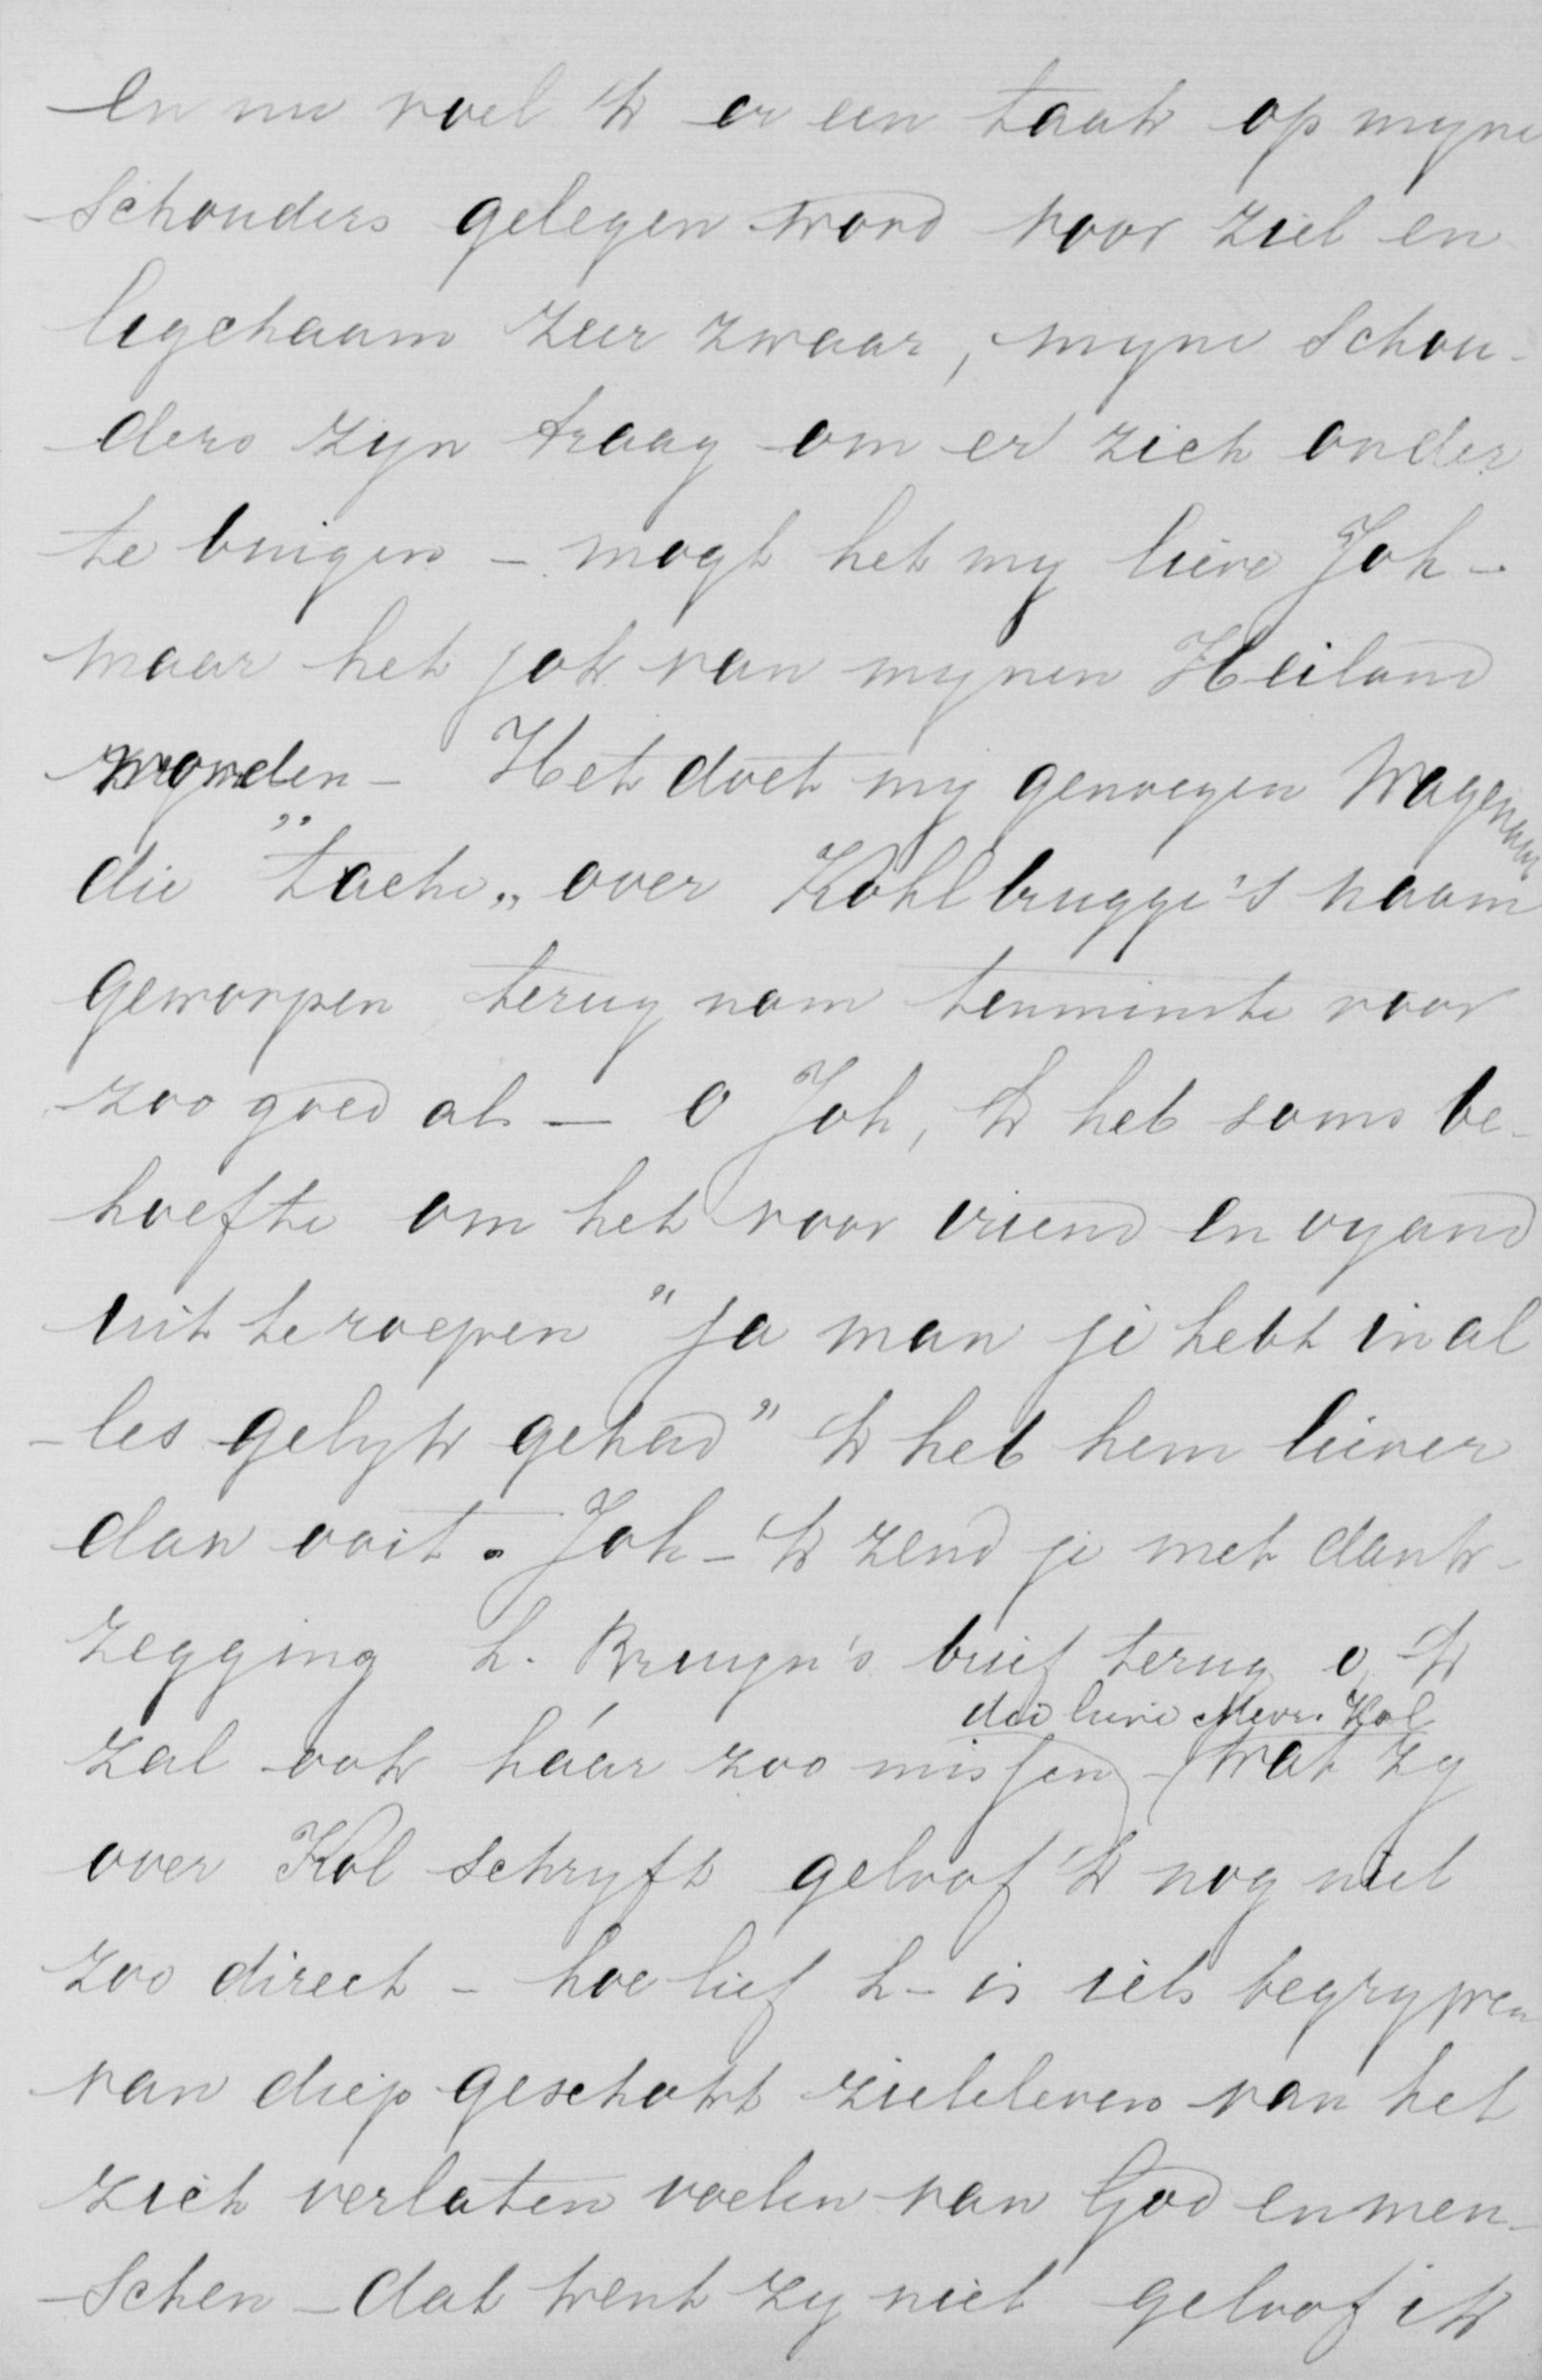 en nu voel 'k er een taak op myne
schouders gelegen word voor ziel en
ligchaam zeer zwaar, myne schou-
ders zyn traag om er zich onder
te buigen - mogt het my lieve Joh -
maar het jok van mynen Heiland
worden - Het doet my genoegen Wagenaar
die "tache" over Kohlbrugge's naam
geworpen terug nam tenminste voor
zoo goed als - O Joh, 'k heb soms be-
hoefte om het voor vriend en vyand
uit te roepen "ja man je hebt in al
-les gelyk gehad" 'k heb hem liever
dan ooit. Joh - 'k zend je met dank-
zegging L. Bruyn's brief terug o, 'k
die lieve Mevr. Kol
zal ook háár zoo missen - wat zy
over Kol schryft geloof 'k nog niet
zoo direct - hoe lief L - is iets begrypen
van diep geschokt zieleleven van het
zich verlaten voelen van God en men-
schen - dat kent zy niet geloof ik